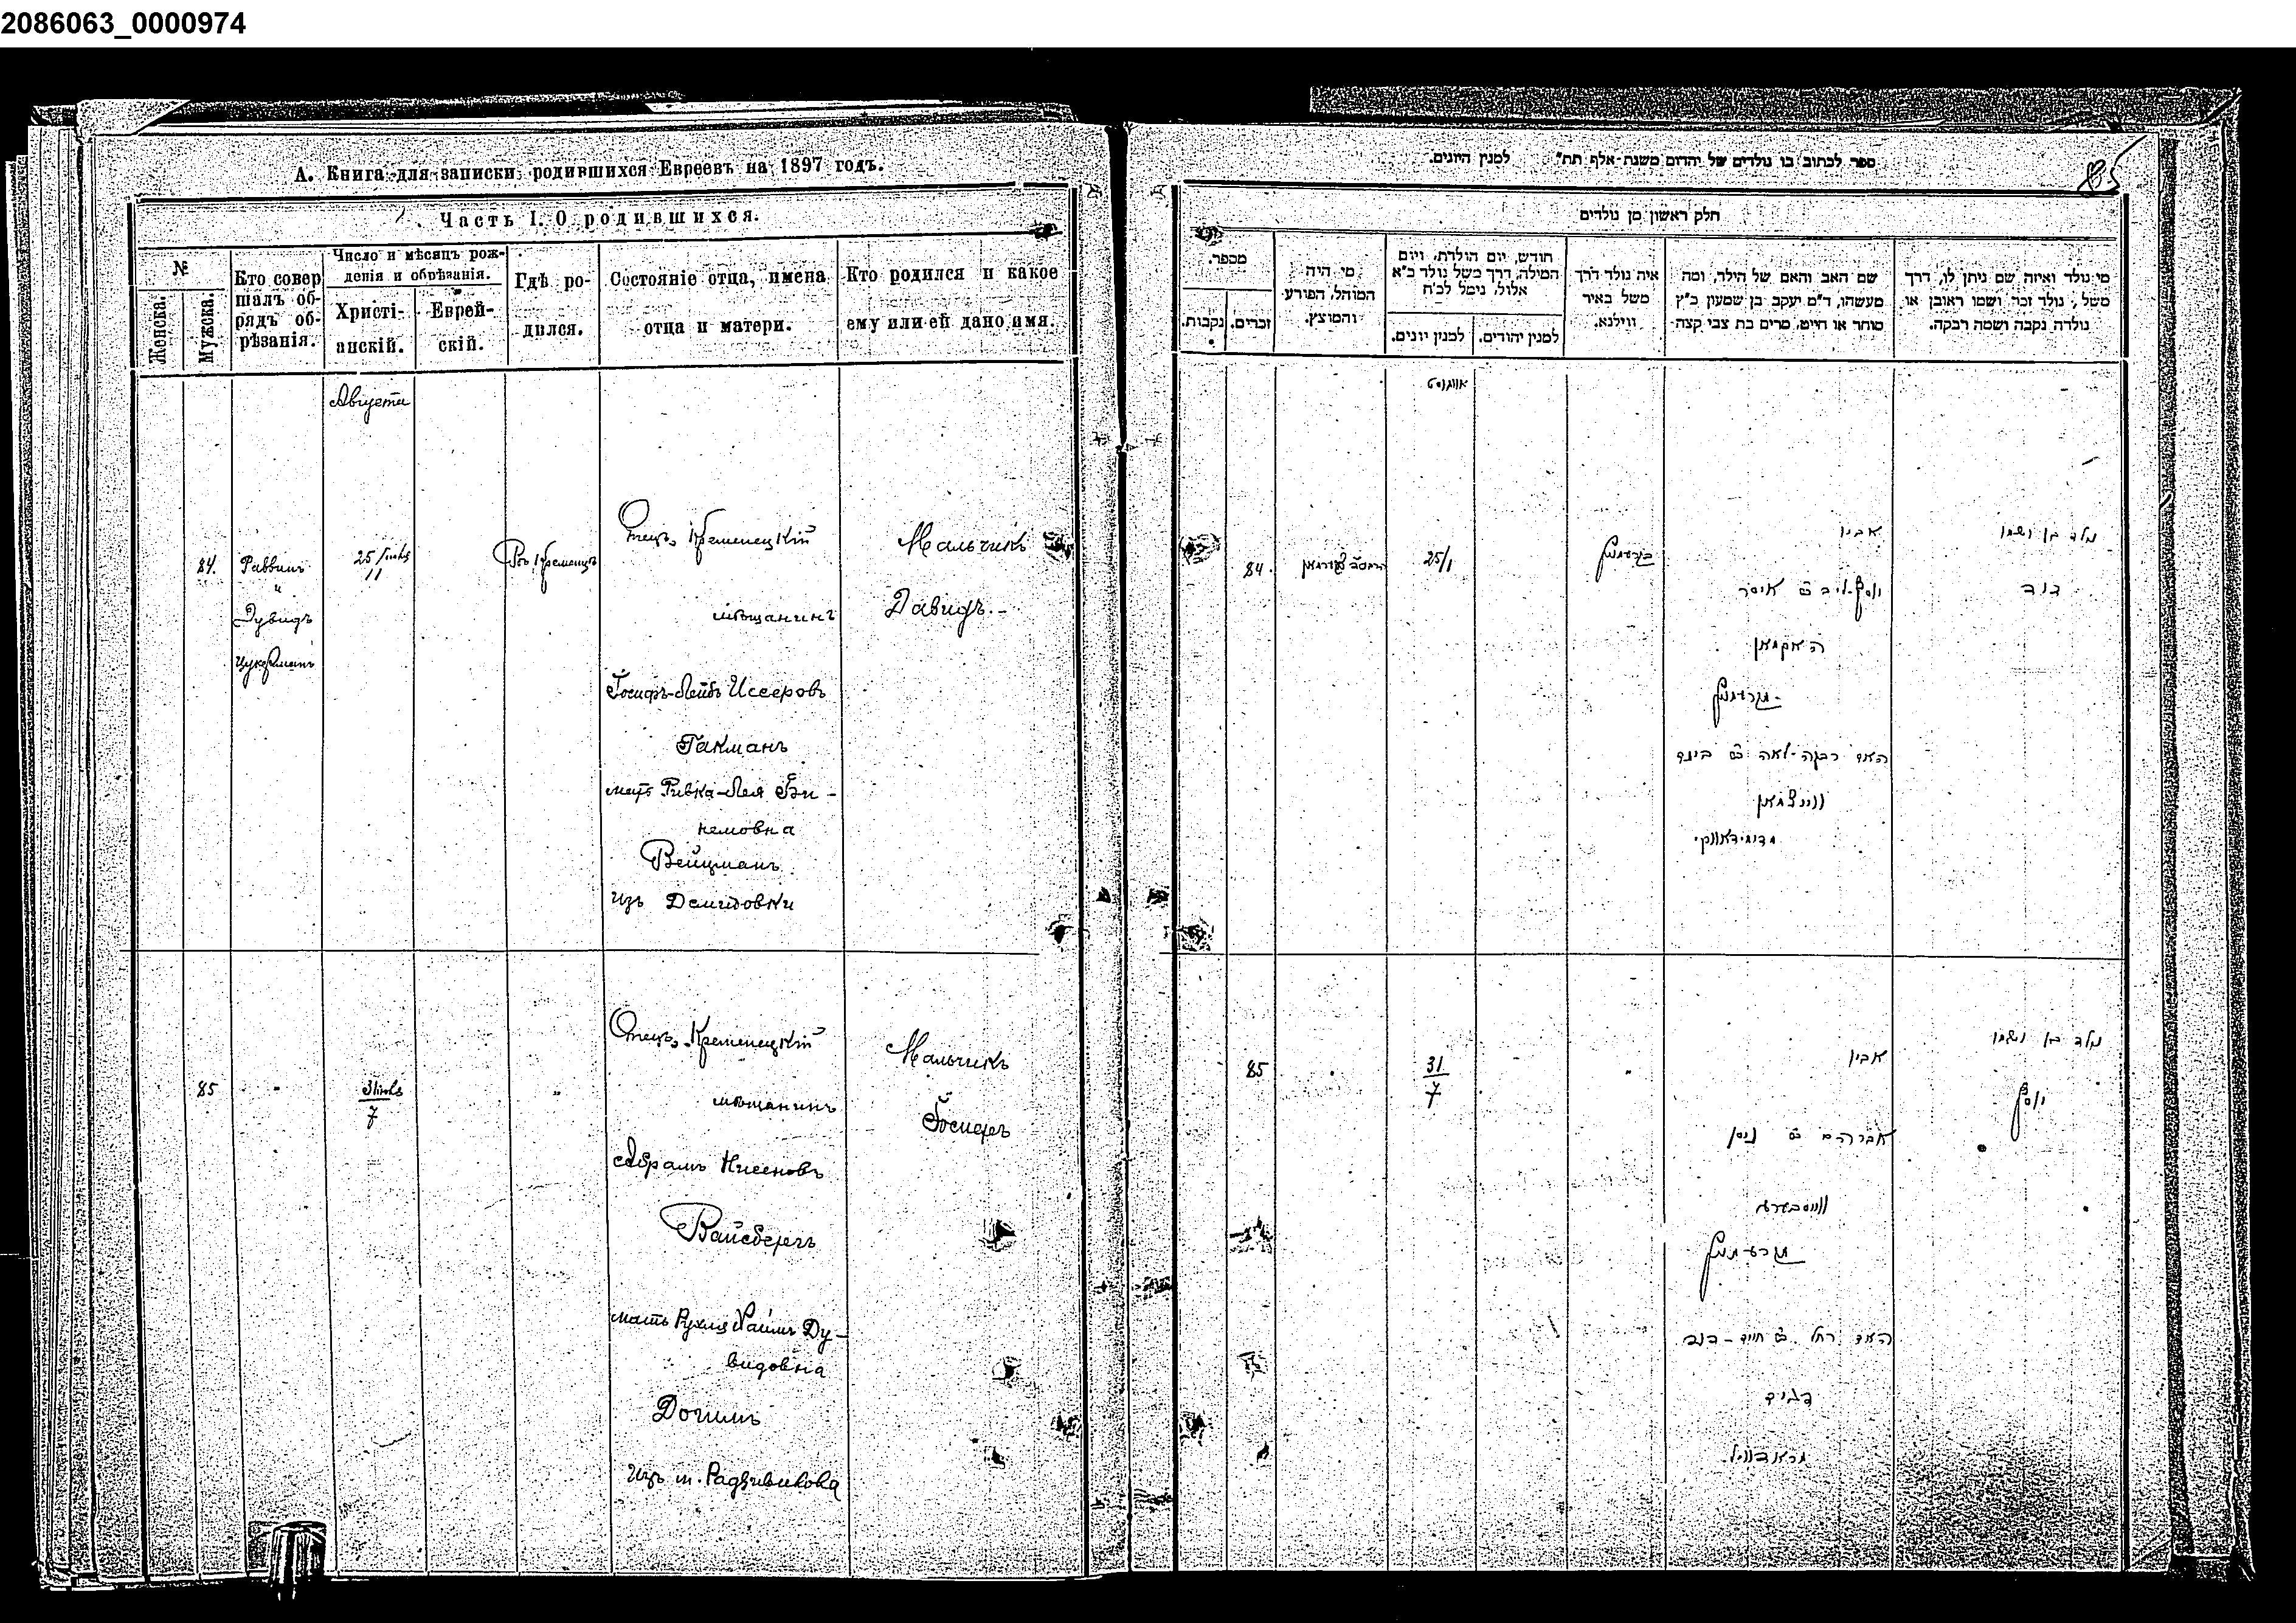 2086063_0000974
А. Книга для записки родившихся Евреевъ на 1897 годъ.
Часть I. О родившихся.
№
Женска.
Мужска.
Кто совер
шалъ об-
рядъ об-
рѣзанія.
Число и мѣсяцъ рож-
денія и обрѣзанія.
Христі-
анскій.
Еврей-
скій.
Гдѣ ро-
дился.
Состояніе отца, имена
отца и матери.
Кто родился и какое
ему или ей дано имя.
Августа
84.
Раввинъ
Дувидъ
Цукерманъ
25 Іюля
11
Въ Кременцѣ
Отецъ, Кременецкій
мѣщанинъ
Іосифъ-Лейбъ Иссеровъ
Гакманъ
мать Ривка-Лея Би-
немовна
Вейцманъ
изъ Демидовки
Мальчикъ
Давидъ.-
85
31 Іюля
7
Отецъ, Кременецкій
мѣщанинъ
Абрамъ Нисеновъ
Вайсбергъ
мать Рухля Ду-
видовна
изъ м. Радзивилова
Мальчикъ
Іосифъ
ספר לכתוב בו נולדים של יהדום משנת אלף תת" למנין היונים.
85
חלק ראשון מן נולדים
מכפר.
נקבות.
זכרים.
מי היה
המוהל, הפורע
והמוצץ.
חודש, יום הולדת, ויום
המילה, דרך משל נולד כ"א
אלול, נימל לכ"ח
למנין יונים.
למנין יהודים.
איה נולד דרך
משל באיר
ווילנא.
שם האב והאם של הילד, ומה
מעשהו, ד"מ יעקב בן שמעון כ"ץ
סוחר או חייט, מרים בת צבי קצה
מי נולד ואיזה שם ניתן לו, דרך
משל, נולד זכר ושמו ראובן או
נולדה נקבה ושמה רבקה.
אווגוסט
84.
25/1
אביו
יוסף-ליב ב"ר איסר
האקמאן
האם רבקה-לאה ב"ר בינם
ווייצמאן
נולד בן ושמו
דוד
85
31
7
אביו
אברהם ב"ר ניסן
ווייסבערג
נולד בן ושמו
יוסף